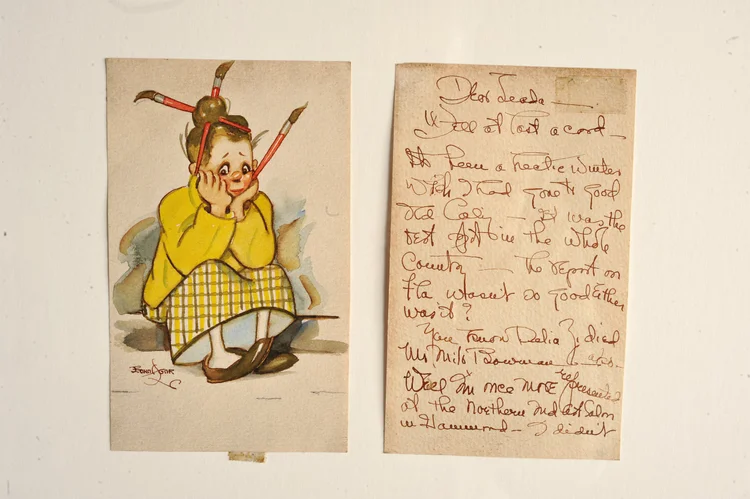 Dear Leada —
Well at last a card —
It's been a hectic winter
Wish I had gone to good
Old Caly — It was the
best spot in the whole
Country — The report on
Fla wasn't so good Either
was it?
You know Dalia Z. died
Mr Milt Bowman also.
Well I'm once more represented
at the Northern Ind Art Salon
in Hammond — I didn't